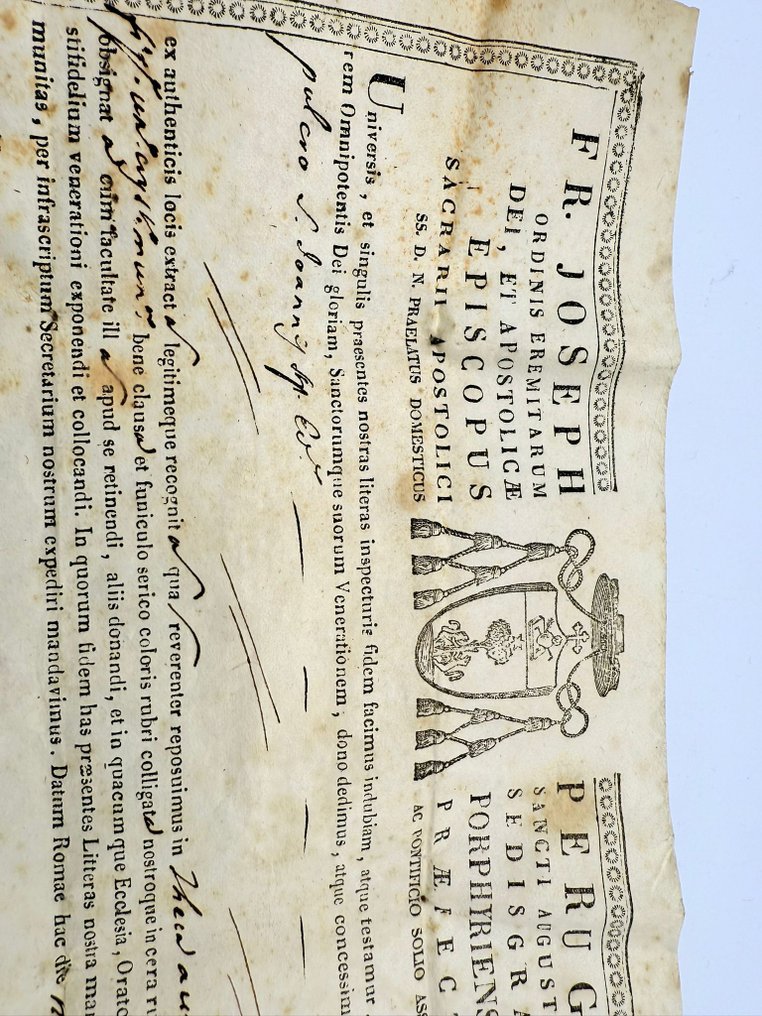 FR. JOSEPH PERUG
ORDINIS EREMITARUM SANCTI AUGUST
DEI, ET APOSTOLICÆ SEDIS GRA
EPISCOPUS PORPHYRIENS
SACRARII APOSTOLICI PRÆFECT
SS. D. N. PRAELATUS DOMESTICUS AC PONTIFICIO SOLIO ASS
Universis, et singulis praesentes nostras literas inspecturis fidem facimus indubiam, atque testamur
rem Omnipotentis Dei gloriam, Sanctorumque suorum Venerationem, dono dedimus, atque concessim
pulcro S. Joannis Ap. Ev
ex authenticis locis extracta legitimeque recognita qua reverenter reposuimus in Theca au
bene clausa et funiculo serico coloris rubri colligata nostroque in cera ru
obsignat a cum facultate illa apud se retinendi, aliis donandi, et in quacumque Ecclesia, Orato
stifidelium venerationi exponendi et collocandi. In quorum fidem has præsentes Litteras nostra man
munitas, per infrascriptum Secretarium nostrum expediri mandavimus. Datum Romae hac die